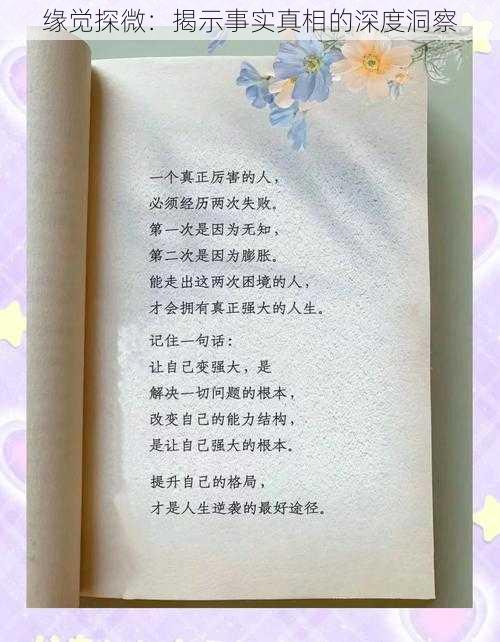 缘觉探微：揭示事实真相的深度洞察
一个真正厉害的人，
必须经历两次失败。
第一次是因为无知，
第二次是因为膨胀。
能走出这两次困境的人，
才会拥有真正强大的人生。
记住一句话：
让自己变强大，是
解决一切问题的根本，
改变自己的能力结构，
是让自己强大的根本。
提升自己的格局，
才是人生逆袭的最好途径。